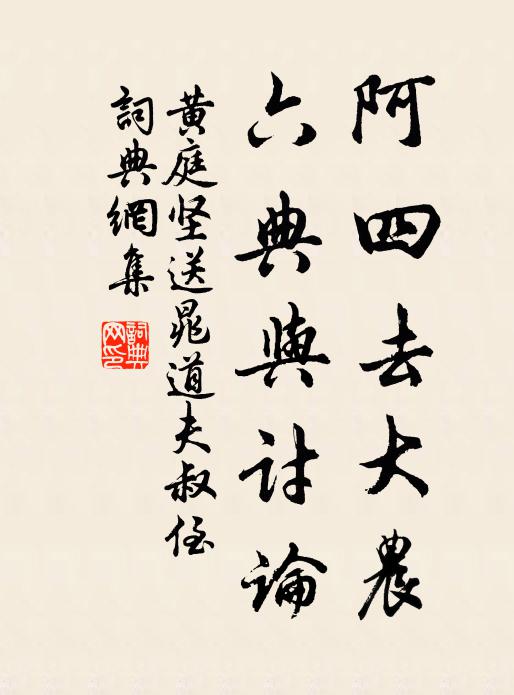 阿四去大農
六典與討論
黄庭坚送晁道夫叔侄
詞典網集
詞典網印